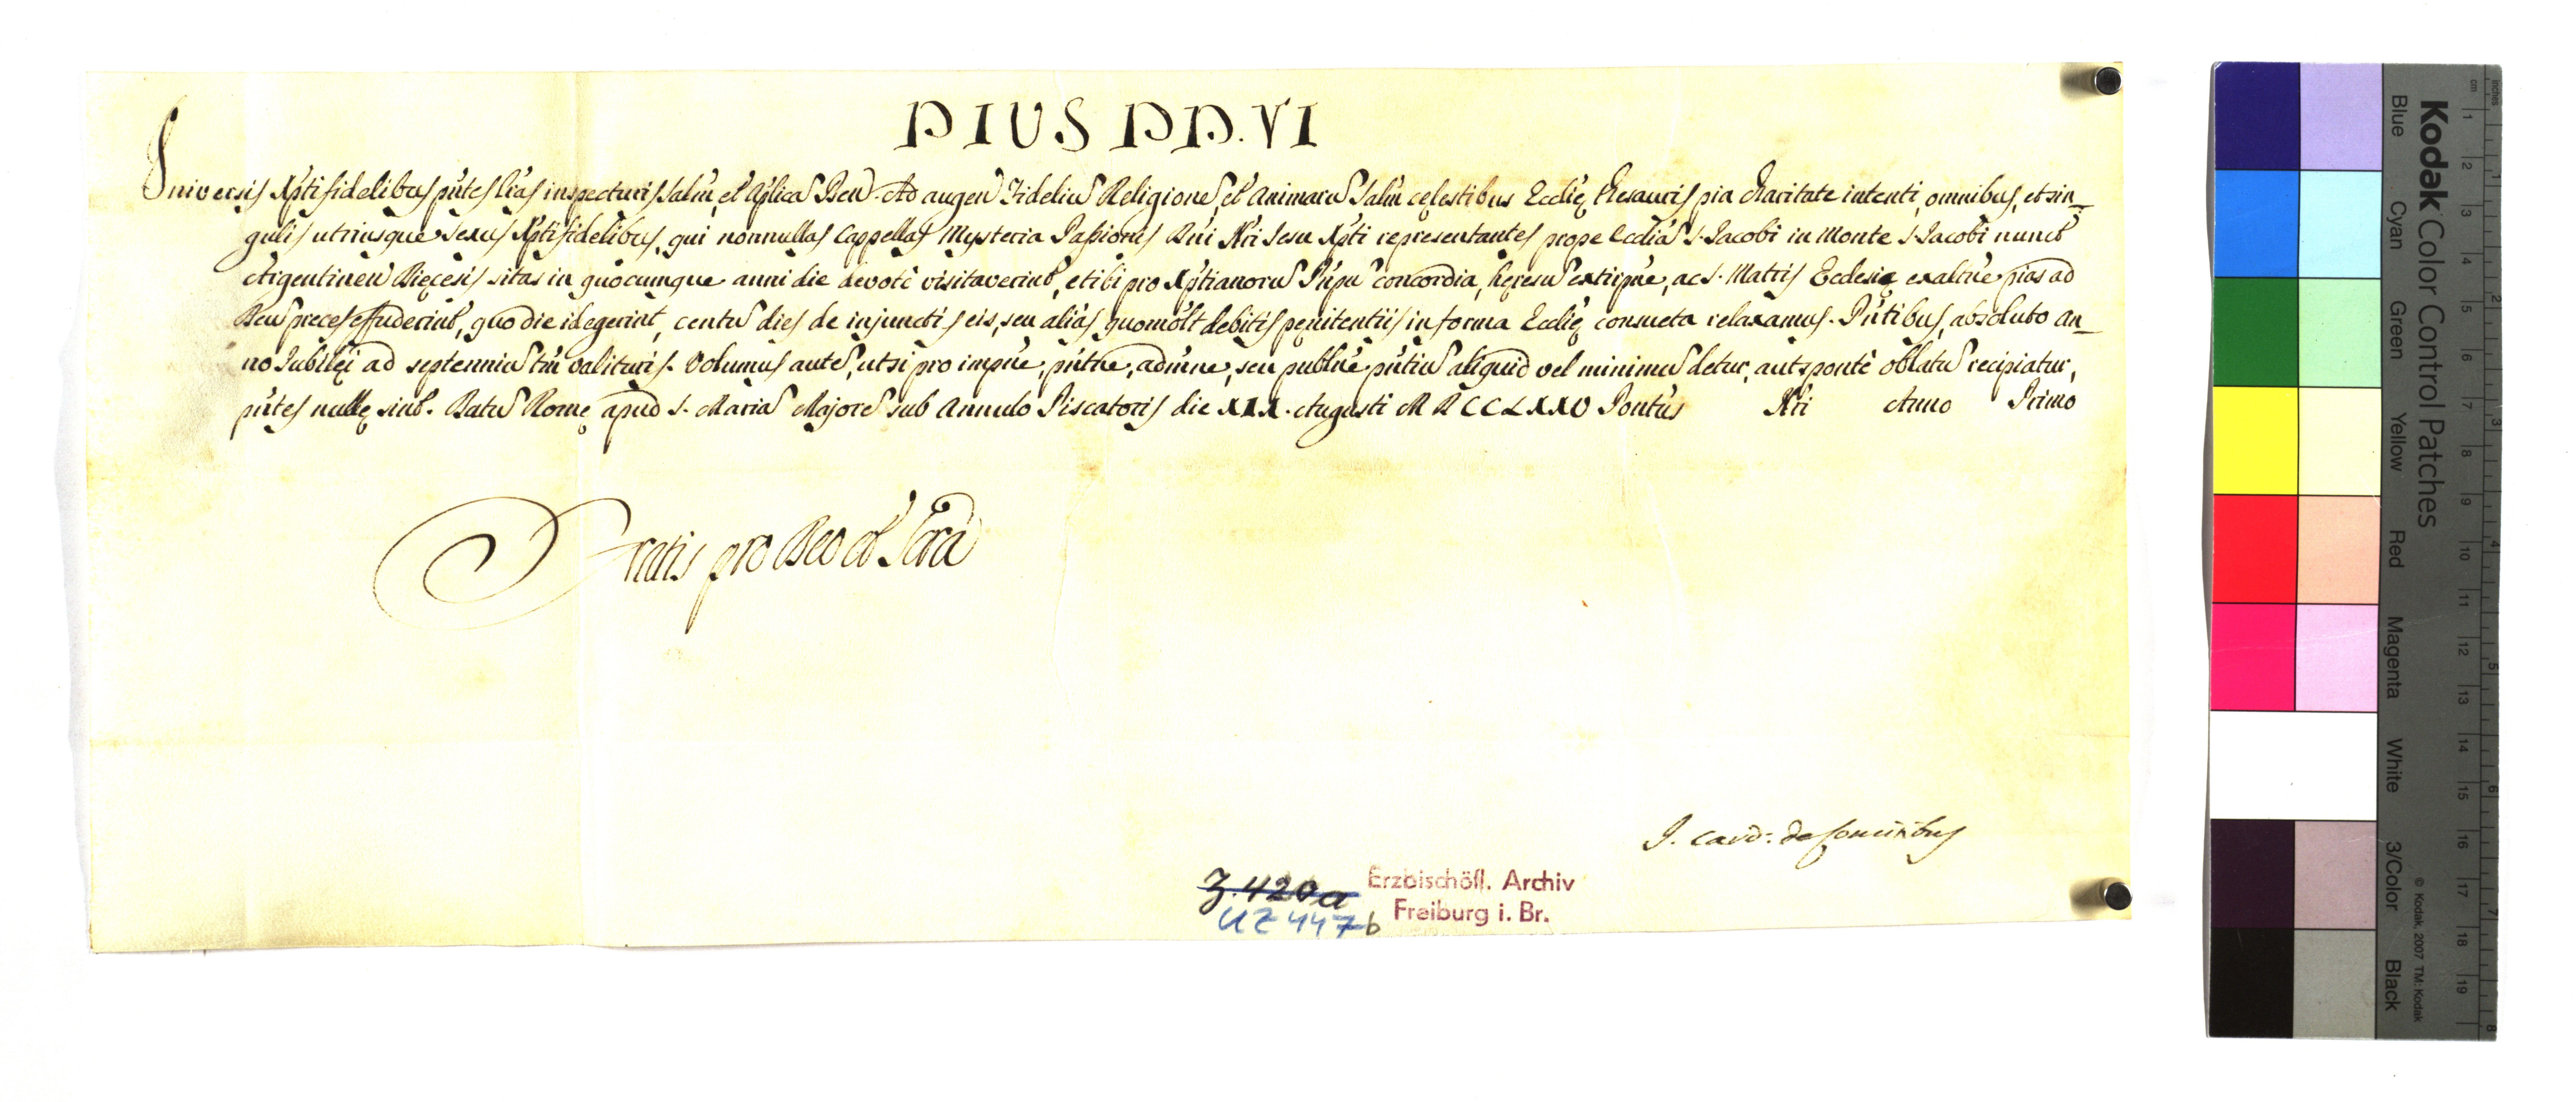 PIUS PP. VI
Universis Xpti fidelibus pñtes Lr̃as inspecturis salm̃, et Aplicã Ben̄. Ad augen̄ Fideliũ Religionẽ et Animarũ salm̃ cęlestibus Ecclię Thesauris pia charitate intenti, omnibus, et sin_
gulis utriusque sexus Xpti fidelibus, qui nonnullas Cappellas Mysteria Passionis Dñi Nr̃i Jesu Xpti representantes prope Eccliã S. Jacobi in Monte S. Jacobi nunct̃
Argentinen̄ Dięcesis sitas in quocumque anni die devotè visitaverint, et ibi pro Xptianorũ Pñpũ concordia, hęresũ extirpñe, ac S. Matris Ecclesię exaltñe pias ad
Deũ preces effuderint, quo die id egerint, centũ dies de injunctis eis, seu aliàs quomolt̃ debitis pęnitentiis in forma Ecclię consueta relaxamus. Pñtibus, absoluto an_
no Jubilęi ad septenniũ tm̃ valituris. Volumus autẽ, ut si pro impñe, pñtñe, admñe, seu publñe pñtiũ aliquid vel minimũ detur, aut spontè oblatũ recipiatur,
pñtes nullę sint. Datũ Romę apud S. Mariã Majorẽ sub Annulo Piscatoris die XXX. Augusti MDCCLXXV Pontũs Nr̃i Anno Primo
Gratis pro Deo et Scrã
J. Card: de Comitibus
Z. 420a
UZ 447b
Erzbischöfl. Archiv
Freiburg i. Br.
Kodak Color Control Patches
Blue Cyan Green Yellow Red Magenta White 3/Color Black
© Kodak, 2007 TM: Kodak
cm 1 2 3 4 5 6 7 8 9 10 11 12 13 14 15 16 17 18 19
inches 1 2 3 4 5 6 7 8